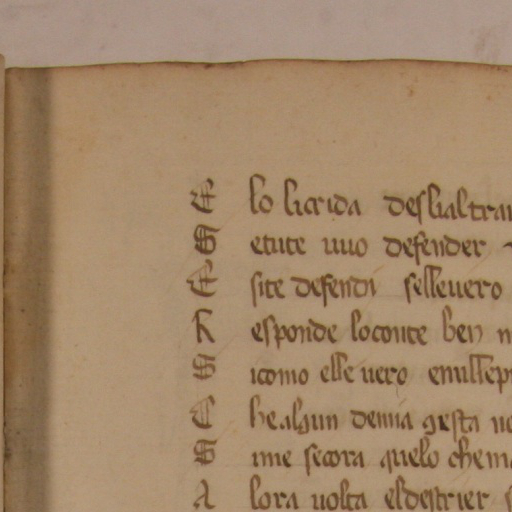 E lo li crida deslial trai
S etute uuo defender
E site defendi selleuero
R esponde loconte ben
S icomo elle uero enulle
C he alqun denuia questa
S ime secora quelo che
A lora uolta eldestrier